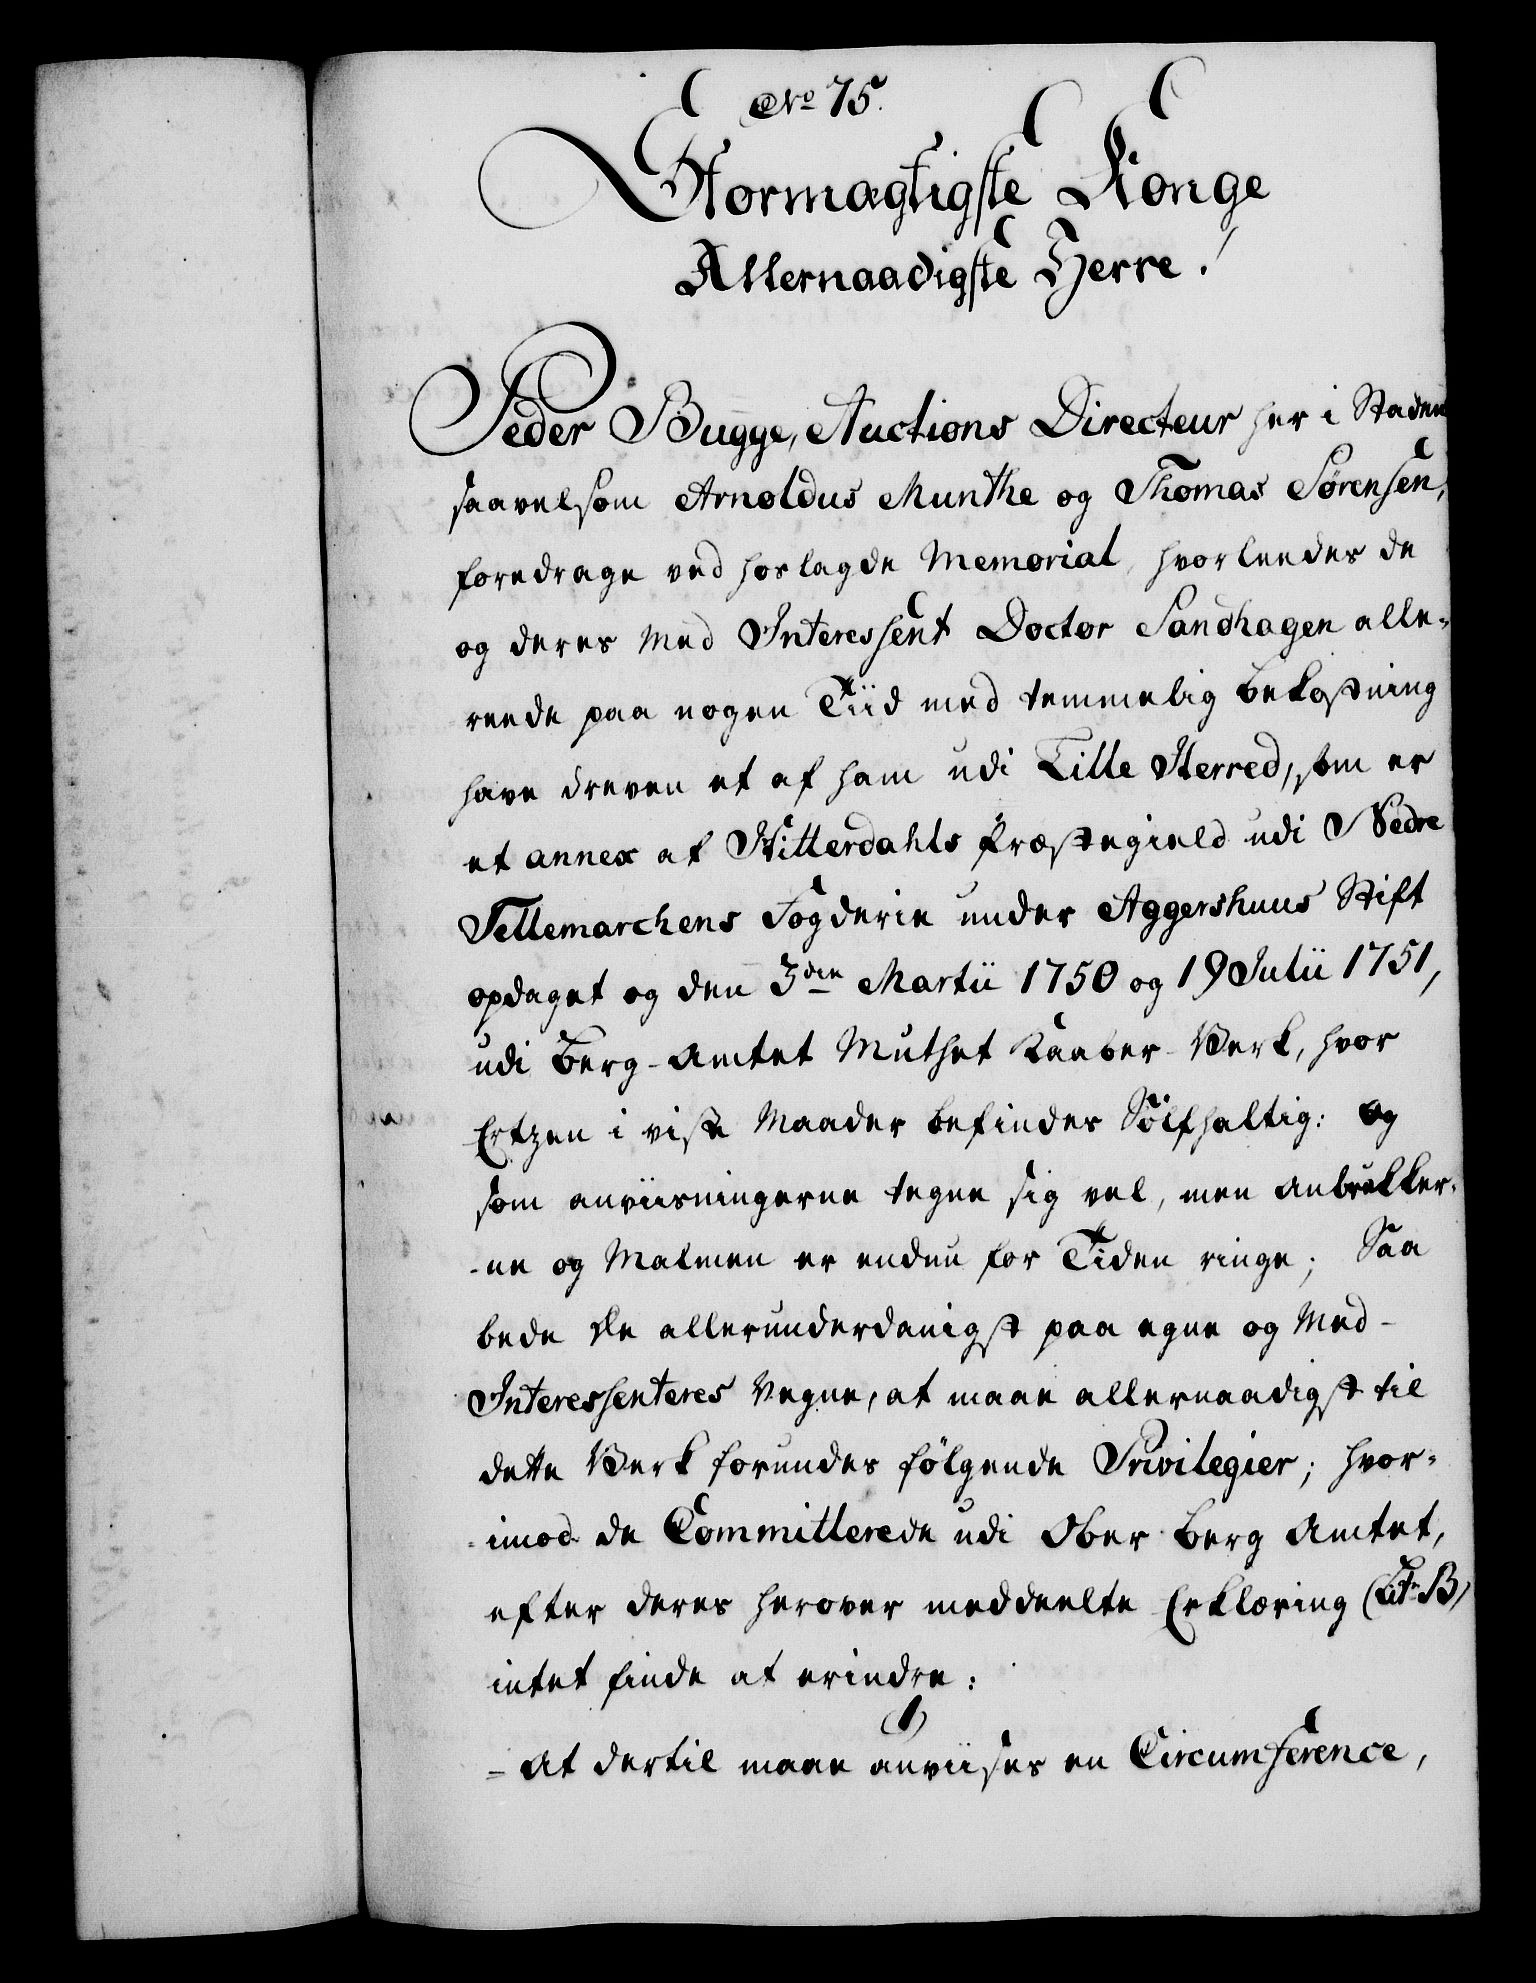 No 75.
Stormægtigste Konge
Allernaadigste Herre!
Peder Bugge, Auctions Directeur her i Staden
saavelsom Arnoldus Munthe og Thomas Sørensen,
foredrage ved hoslagde Memorial, hvorleedes de
og deres Med Interessent Doctor Sandhagen alle-
reede paa nogen Tiid med temmelig bekostning
have dreven et af ham udi Lille Herred, som er
et annex af Hitterdahls Præstegield udi Nedre
Tellemarchens Fogderie under Aggershuus Stift
opdaget og den 3die Martii 1750 og 19 Julii 1751,
udi Berg-Amtet Muthet Kaaber-Verk, hvor
Ertzen i visse Maader befindes Sølfhaltig: og
som anviisningerne tegne sig vel, men Anbrukker-
-ne og Malmen er endnu for Tiden ringe; Saa
bede de allerunderdanigst paa egne og Med-
Interessenteres Vegne, at maae allernaadigst til
dette Verk forundes følgende Privilegier; hvor-
-imod de Committerede udi Ober-Berg Amtet,
efter deres herover meddeelte Erklæring (Litr B)
intet finde at erindre:
(1)
- At dertil maae anviises en Circumference,